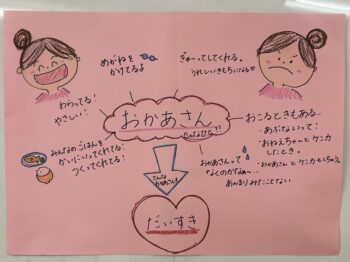 めがねを
かけてるよ
ぎゅーってしてくれる。
うれしいきもちになる♡
わらってる!
やさしい!
おかあさん
おこるときもある…
・あぶないって!
・おねえちゃんとケンカ
したとき。
・おかあさんとケンカもしちゃう。
みんなのごはんを
かいにいってくれてる!
つくってくれてる!
おかあさんって
なくのかなぁ〜…
あんまりみたことない
だいすき